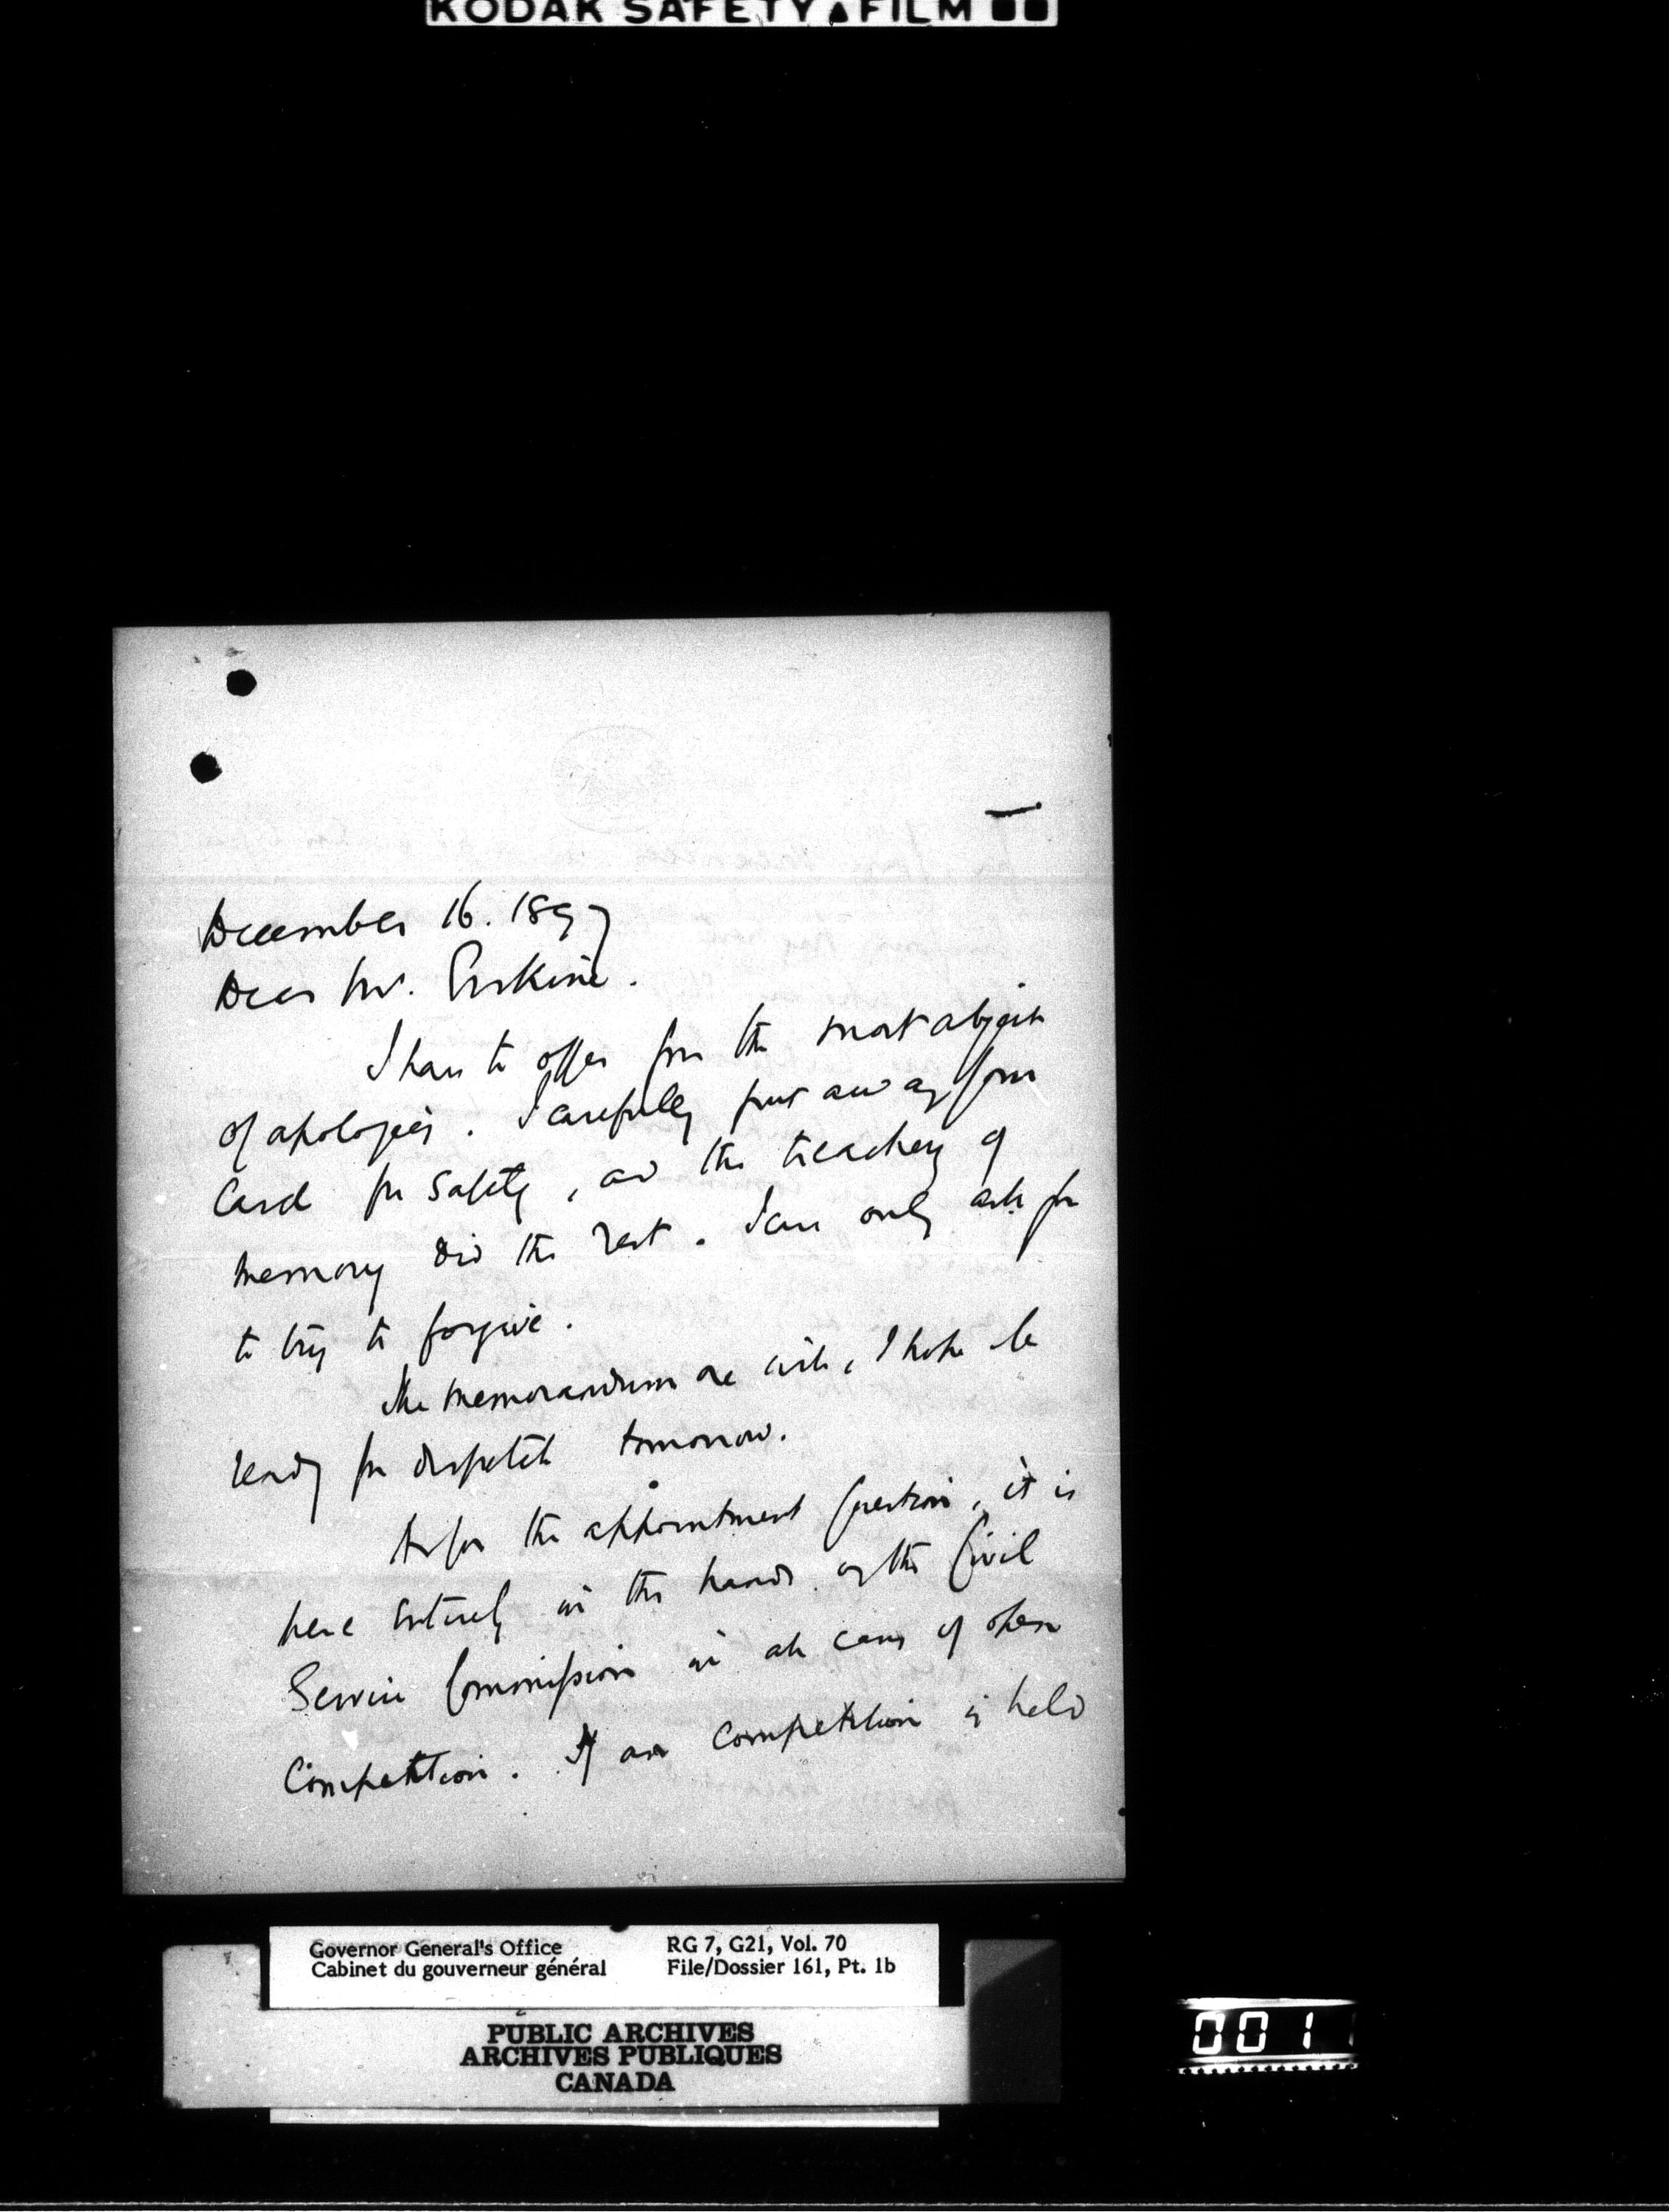 KODAK SAFETY FILM
December 16. 1897
Dear Mr. Erskine.
I have to offer you the most abject
of apologies. I carefully put away your
Card for safety, and the treachery of
memory did the rest. I can only ask you
to try to forgive.
The memorandum will, I hope be
ready for dispatch tomorrow.
As for the appointment question, it is
here entirely in the hands of the Civil
Service Commission in all cases of open
Competition. If a competition is held
Governor General's Office
Cabinet du gouverneur général
RG 7, G21, Vol. 70
File/Dossier 161, Pt. 1b
PUBLIC ARCHIVES
ARCHIVES PUBLIQUES
CANADA
001